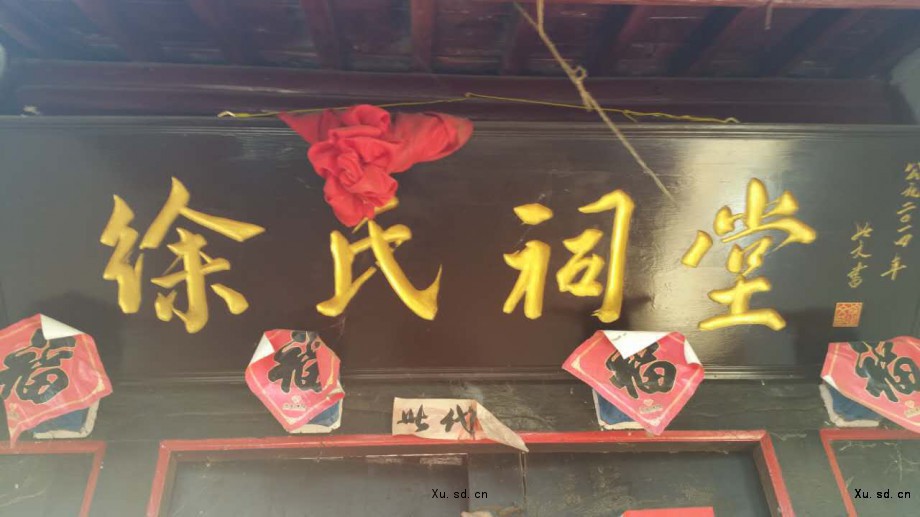 徐氏祠堂
公元二〇一四年
福
福
福
福
世代
Xu.sd.cn
Xu.sd.cn